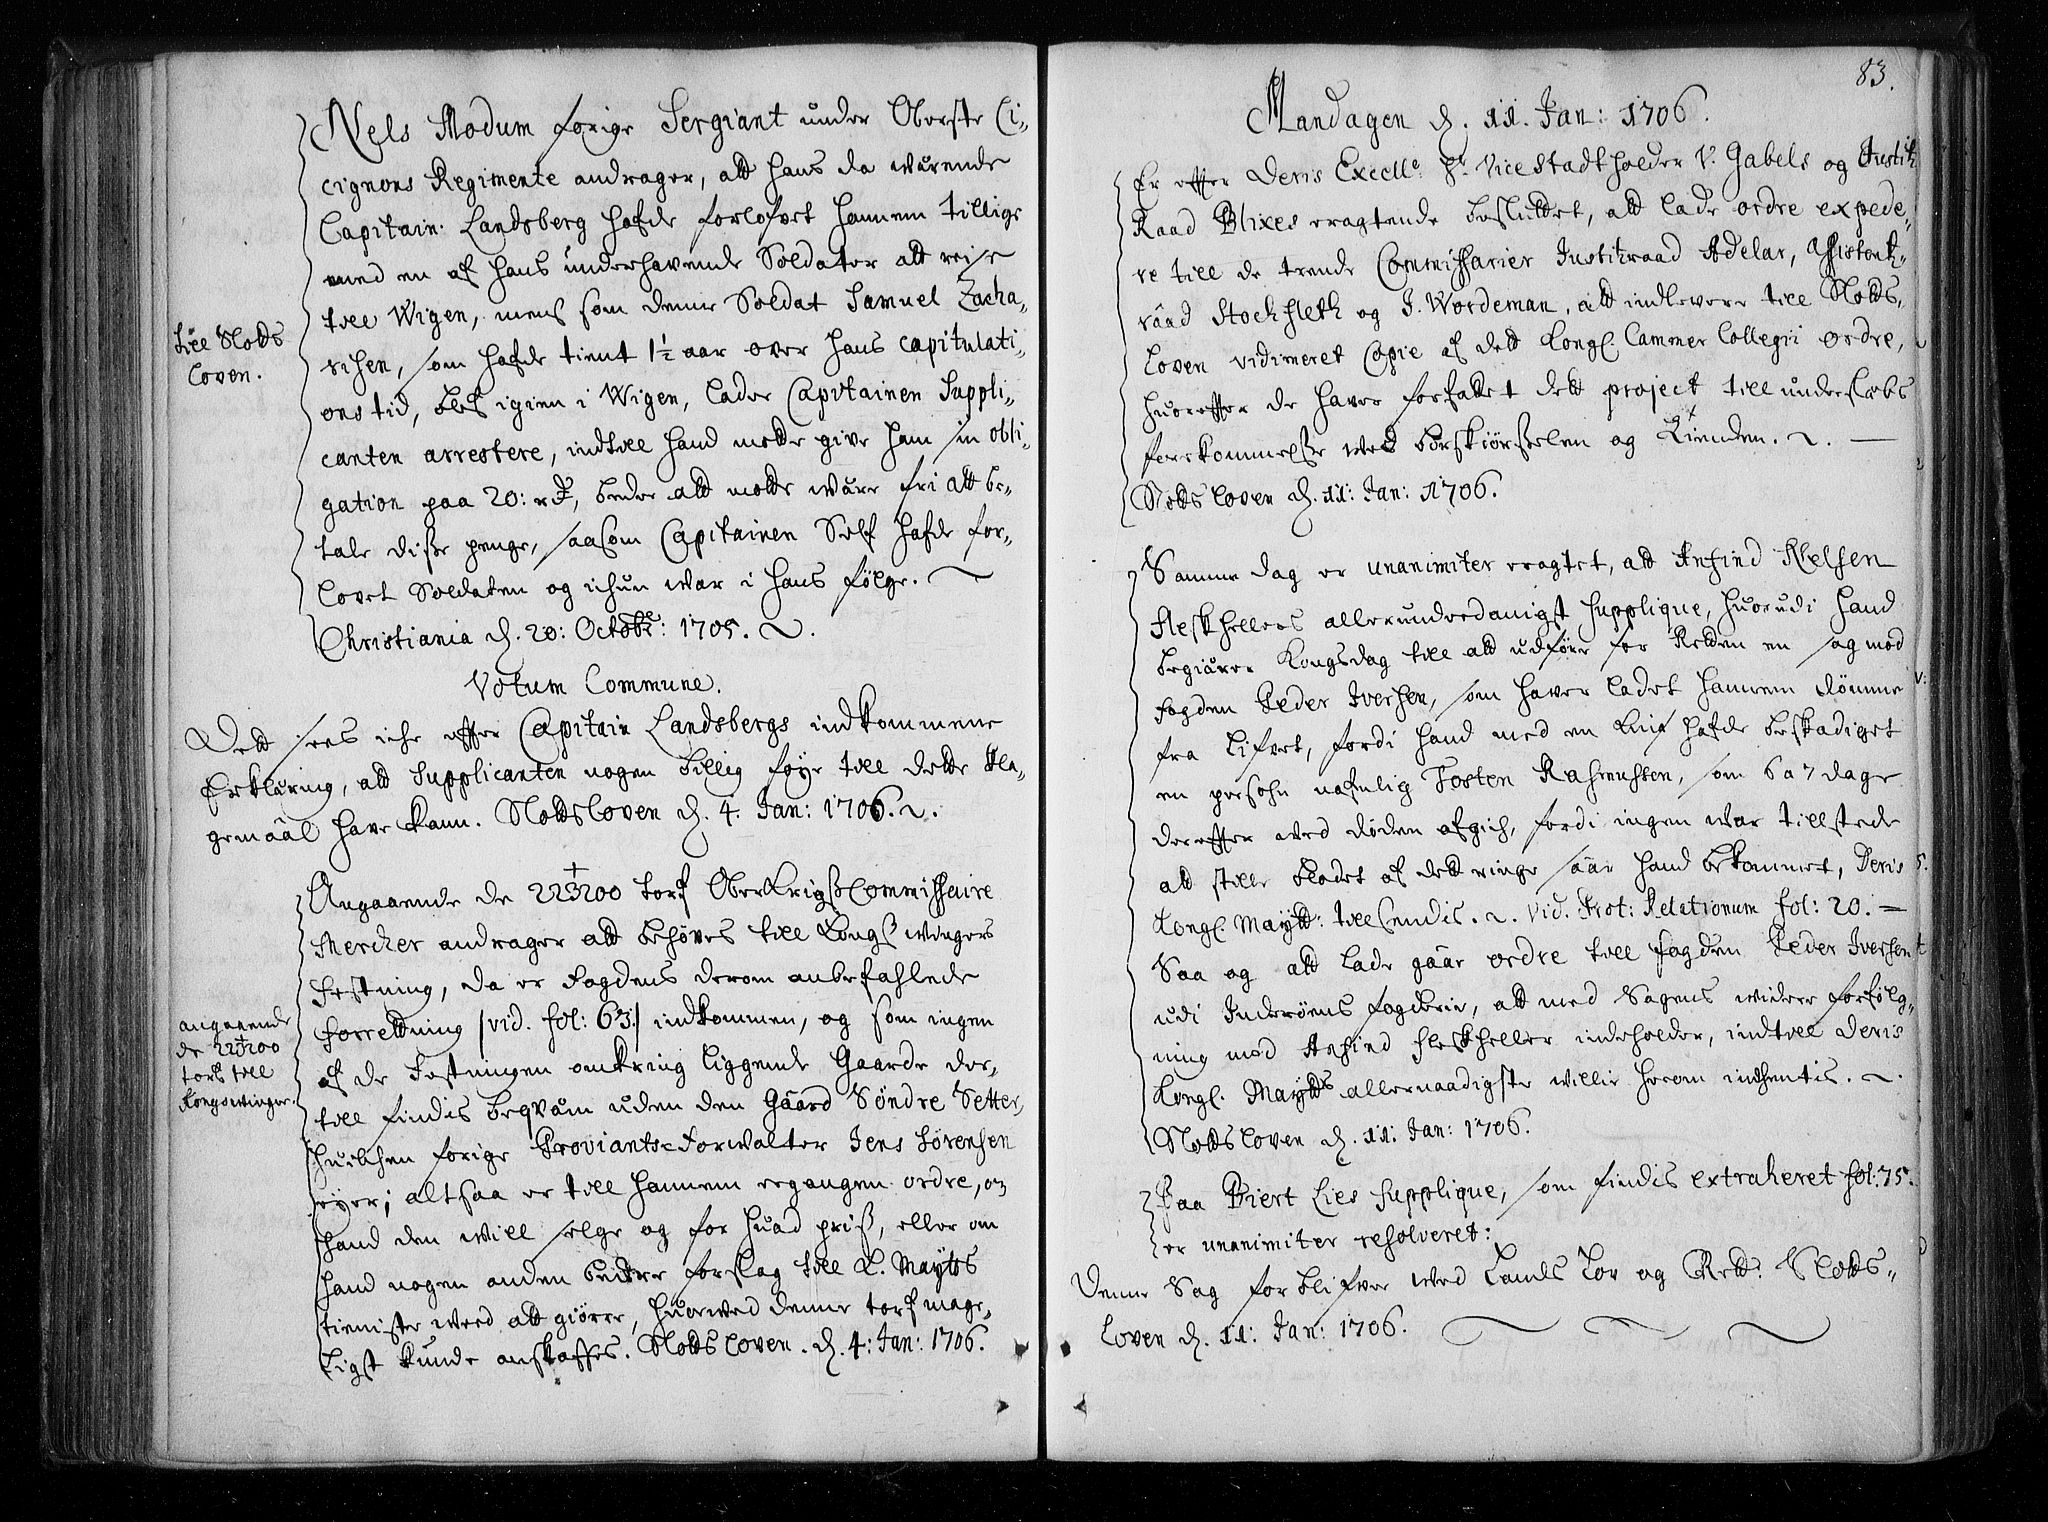 Nels Modum forige Sergiant under Oberste Ci-
cignons Regimente andrager, att hans da wærende
Capitain: Landsberg hafde forlofvet hannem tillige
med en af hans underhavende Soldater att reise
till Wigen, mens som denne Soldat Samuel Zacha-
risen, som hafde tient 1½ aar over hans capitulati-
ons tid, blef igien i Wigen, lader Capitainen Suppli-
canten arrestere, indtill hand motte give ham sin obli-
gation paa 20: rd, beder att motte wære fri att be-
tale disse penge, saasom Capitainen Self hafde for-
lovet Soldaten og ichun war i hans følge.
Christiania d. 20: Octobr: 1705.
till Slotts
loven.
Votum Commune.
Dett sees iche effter Capitain Landsbergs indkommene
Erklæring, att Supplicanten nogen billig føye till dette kla-
gemaal have kann. Slottsloven d. 4. Jan: 1706.
Angaaende de 223200 torf OberKrigsCommissaire
Mercker andrager att behøves till Kongs wingers
Festning, da er Fogdens derom anbefahlede
forretning /vid. fol: 63./ indkommen, og som ingen
af de Festningen omkring liggende Gaarde der-
till findis beqvæm uden den Gaard Søndre Setter,
huilchen forige Proviants-Forwalter Jens Sørensen
eyer; altsaa er till hannem ergangen ordre, om
hand den will selge og for huad priis, eller om
hand nogen anden bedre forslag till K. Maytts
tieniste weed att giøre, huorved denne torf mage-
ligst kunde anskaffes. Slotts loven. d. 4: Jan: 1706.
angaaende
de 223200
torf till
Kongswinger.
83.
Mandagen d. 11. Jan: 1706.
Er effter Deris Excell: Hr. Vice Stadtholder V. Gabels og Justitz
Raad Blixes eragtende besluttet, att lade ordre expede-
re till de trende Commissarier Justitzraad Adelar, Assistentz-
raad Stockfleth og J. Wordeman, att indlevere till Slotts-
loven vidimeret Copie af dett Kongl. Cammer Collegii ordre,
huoreffter de haver forfattet dett project till underslebs
forekommelse wed kiørselen og Tienden.
Slotts loven d. 11: Jan: 1706.
Samme dag er unanimiter eragtet, att Anfind Nielsen
Fleskhellers allerunderdanigst Supplique, huorudi hand
begiærer Kongsdag till att udføre for Retten en sag mod
fogden Peder Iversen, som haver ladet hannem dømme
fra Lifvet, fordi hand med en knif hafde beskadiget
en persohn nafnlig Tosten Rasmussen, som 6 a 7 dage
dereffter ved døden afgich, fordi ingen war tillstede
att stille blodet af dett ringe saar hand bekommet, Deris
Kongl. Maytt: tillsendis. vid. Prot: Relationum fol: 20.
Saa og att lade gaae ordre till fogden Peder Iversen
udi Inderøens fogderie, att med Sagens widere forfølg-
ning mod Anfind Fleskheller indeholder, indtill Deris
Kongl. Maytts allernaadigste willie herom indhentis.
Slotts loven d. 11: Jan: 1706.
Paa Biert Lies Supplique, som findis extraheret fol: 75.
er unanimiter resolveret:
Denne Sag forblifver wed Lands Lov og Rett. Slotts-
loven d. 11: Jan: 1706.